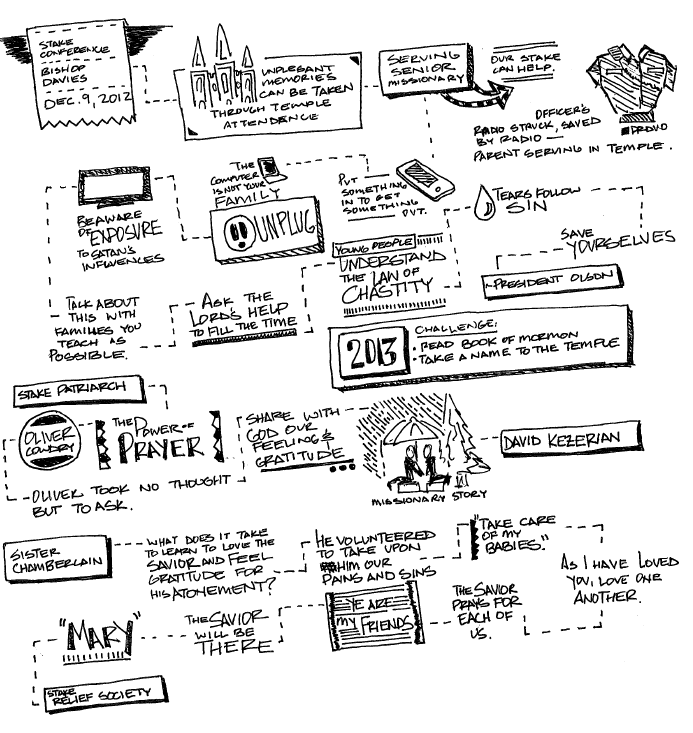 STAKE
CONFERENCE
BISHOP
DAVIES
DEC. 9, 2012
UNPLESANT
MEMORIES
CAN BE TAKEN
THROUGH TEMPLE
ATTENDENCE
SERVING
SENIOR
MISSIONARY
OUR STAKE
CAN HELP.
OFFICER'S
RADIO STRUCK, SAVED
BY RADIO —
PARENT SERVING IN TEMPLE.
PROVO
BEAWARE
OF EXPOSURE
TO SATAN'S
INFLUENCES
THE
COMPUTER
IS NOT YOUR
FAMILY
UNPLUG
PUT
SOMETHING
IN TO GET
SOMETHING
OUT.
TEARS FOLLOW
SIN
SAVE
YOURSELVES
~PRESIDENT OLSON
YOUNG PEOPLE
UNDERSTAND
THE LAW OF
CHASTITY
ASK THE
LORD'S HELP
TO FILL THE TIME
TALK ABOUT
THIS WITH
FAMILIES YOU
TEACH AS
POSSIBLE.
2013
CHALLENGE:
• READ BOOK OF MORMON
• TAKE A NAME TO THE TEMPLE
STAKE PATRIARCH
OLIVER
COWDRY
THE POWER OF
PRAYER
OLIVER TOOK NO THOUGHT
BUT TO ASK.
SHARE WITH
GOD OUR
FEELINGS
GRATITUDE
MISSIONARY STORY
DAVID KEZERIAN
SISTER
CHAMBERLAIN
WHAT DOES IT TAKE
TO LEARN TO LOVE THE
SAVIOR AND FEEL
GRATITUDE FOR
HIS ATONEMENT?
HE VOLUNTEERED
TO TAKE UPON
HIM OUR
PAINS AND SINS
"TAKE CARE
OF MY
BABIES."
AS I HAVE LOVED
YOU, LOVE ONE
ANOTHER.
THE SAVIOR
PRAYS FOR
EACH OF
US.
YE ARE
MY FRIENDS
THE SAVIOR
WILL BE
THERE
"MARY"
STAKE
RELIEF SOCIETY